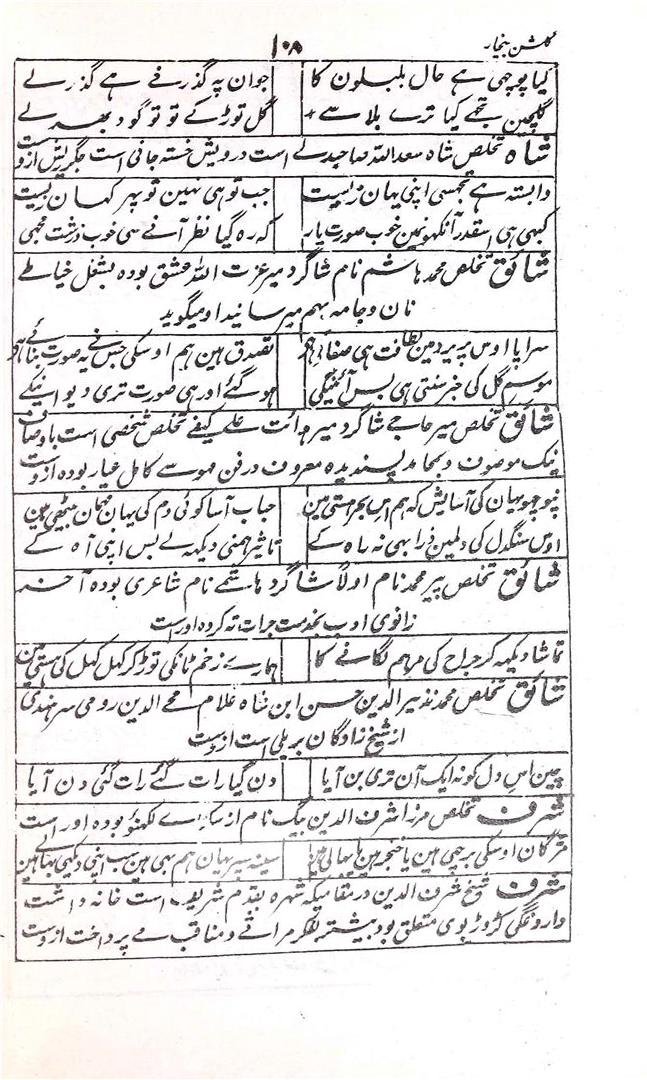 گلشن بیخار
۱۰۸
کیا پوچھی ہے حال بلبلون کا جوان پہ گذرنے ہے گذرلے
گلچین تجھے کیا ترے بلا سے گل توڑ کے تو تو گود بھر لے
شاہ تخلص شاہ سعد اللہ صاحبدلے است درویش خستہ جانی است جگرریش ازوست
وابستہ ہے تجھسی اپنی یہان زیست جب تو ہی نہین تو پھر کہان زیست
کبھی ہی اسقدر آنکھونمین خوب صورت یار کہ رہ گیا نظر آنے سی خوب و زشت مجھی
شائق تخلص محمد ہاشم نام شاگرد میر عزت اللہ عشق بودہ بشغل خیاطے
نان و جامہ بہم میرسانید او میگوید
سراپا اوس پریرو مین لطافت ہی صفائی ہی تصدق ہین ہم اوسکی جس نے یہ صورت بنائی ہی
موسم گل کی خبر سنتی ہی بس آئنگی ہو گئے اور ہی صورت تری دیوانیکے
شائق تخلص میر حاجے شاگرد میر امانت علے کیفے تخلص شخصی است باوصاف
نیک موصوف و بمحامد پسندیدہ معروف در فن موسے کامل عیار بودہ ازوست
نپوچھو یہان کی آسایش کہ ہم اس بحر ہستی مین حباب آسا کوئی دم کی یہان مہمان بیٹھی ہین
اوس سنگدل کی دلمین ذرا بھی نہ راہ کے تاثیر ہمنی دیکھہ لے بس اپنی آہ کے
شائق تخلص پیر محمد نام اولاً شاگرد ہاشمے نام شاعری بودہ آخر
زانوی ادب بخدمت جرات تہ کردہ اوراست
تماشا دیکھہ کر جراح کی مرہم لگانے کا ہمارے زخم ٹانکی توڑ کر کھل کھل کی ہنستی ہین
شائق تخلص محمد نذیر الدین حسن ابن شاہ غلام محے الدین رومی سرہندی
از شیخ زادگان بریلی است ازوست
چین اس دل کو نہ ایک آن تری بن آیا دن گیا رات گئے رات گئی دن آیا
شرف تخلص مرزا شرف الدین بیگ نام از لکھنؤ بودہ اوراست
مژگان اوسکی برچھی ہین یا خنجر ہین یا بھالی ہین سینہ سپر یہان ہم بھی ہین سب اپنی دیکھی بھالی ہین
شرف شیخ شرف الدین در مقامیکہ شہرہ بقدم شریف است خانہ داشت
داروغگی کڑوڑ بوی متعلق بود بیشتر بفکر مراثے و مناقب مے پرداخت ازوست